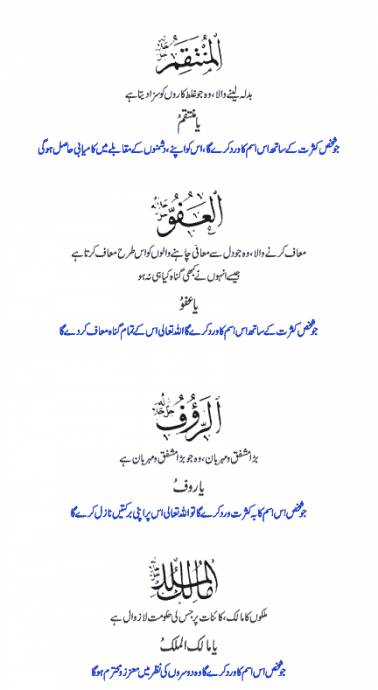 المنتقم جل جلالہ
بدلہ لینے والا، وہ جو غلط کاروں کو سزا دیتا ہے
یا منتقمُ
جو شخص کثرت کے ساتھ اس اسم کا ورد کرے گا، اس کو اپنے، دشمنوں کے مقابلے میں کامیابی حاصل ہوگی
العفوّ جل جلالہ
معاف کرنے والا، وہ جو دل سے معافی چاہنے والوں کو اس طرح معاف کرتا ہے
جیسے انہوں نے کبھی گناہ کیا ہی نہ ہو
یا عفوُ
جو شخص کثرت کے ساتھ اس اسم کا ورد کرے گا اللہ تعالی اس کے تمام گناہ معاف کر دے گا
الرؤف جل جلالہ
بڑا مشفق و مہربان، وہ جو بڑا مشفق و مہربان ہے
یا روفُ
جو شخص اِس اسم کا بہ کثرت ورد کرے گا تو اللہ تعالی اس پر اپنی برکتیں نازل کرے گا
مالک الملک جل جلالہ
ملکوں کا مالک، کائنات پر جس کی حکومت لازوال ہے
یا مالک الملکُ
جو شخص اس اسم کا ورد کرے گا وہ دوسروں کی نظر میں معزز و محترم ہوگا